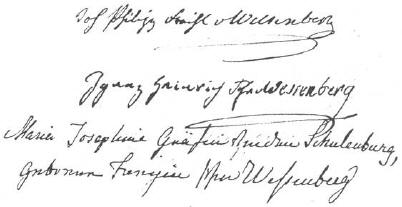 Joh Philipp Freihr v Wessenberg
Ignaz Heinrich Fhr v Wessenberg
Maria Josephine Gräfin von der Schulenburg,
Geborene Freyin von Wessenberg